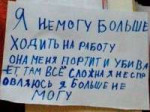 Я НЕМОГУ БОЛЬШЕ
ХОДИТЬ НА РАБОТУ
ОНА МЕНЯ ПОРТИТ И УБИВА
ЕТ ТАМ ВСЁ СЛОЖНА Я НЕСПР
ОВЛЯЮСЬ Я БОЛЬШЕ НЕ
МОГУ